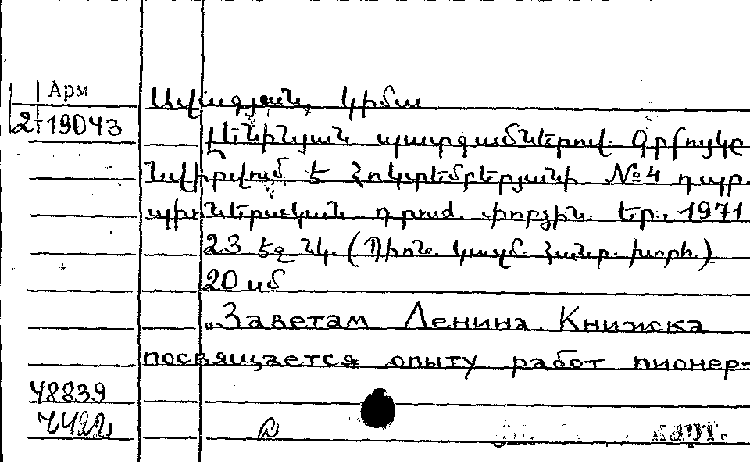 Арм
2-19043
Ավագյան, Կիմա
Լենինյան պատգամներով. Գրքույկը
նվիրվում է Հոկտեմբերյանի №4 դպր.
պիոներական դրուժ. փորձին. Եր., 1971
23 էջ նկ. (Պիոն. կազմ. հանր. խորհ.)
20 սմ
„Заветам Ленина. Книжска
посвящается опыту работ пионер-
48839
карт.